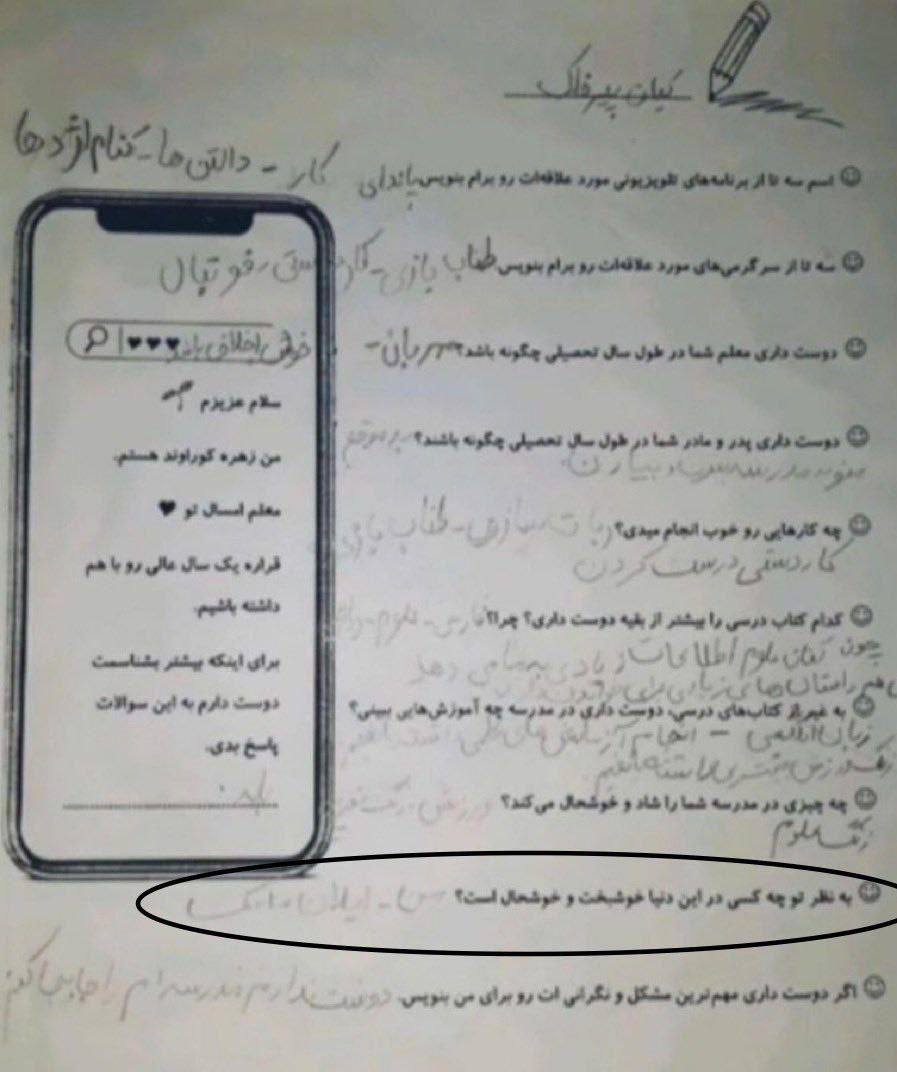 کیان پیرفلک
اسم سه تا از برنامه‌های تلویزیونی مورد علاقه‌ات رو برام بنویس. پاندای
کار - دالتن ها - کتام اژدها
سه تا از سرگرمی‌های مورد علاقه‌ات رو برام بنویس. طناب بازی - کاردستی - فوتبال
دوست داری معلم شما در طول سال تحصیلی چگونه باشد؟ مهربان -
خوش اخلاق باشد
دوست داری پدر و مادر شما در طول سال تحصیلی چگونه باشند؟ به موقع
منو به مدرسه
چه کارهایی رو خوب انجام میدی؟ ربات سازی - طناب بازی
کاردستی درست کردن
کدام کتاب درسی را بیشتر از بقیه دوست داری؟ چرا؟ فارسی - علوم -
چون کتاب علوم اطلاعات زیادی به ما می دهد
هم داستان های زیبایی برای
به غیر از کتاب‌های درسی، دوست داری در مدرسه چه آموزش‌هایی ببینی؟
زبان انگلیسی - انجام آزمایش های علمی
زنگ ورزش بیشتری داشته باشم
چه چیزی در مدرسه شما را شاد و خوشحال می‌کند؟ ورزش -
زنگ علوم
به نظر تو چه کسی در این دنیا خوشبخت و خوشحال است؟ من - ایلان ماسک
اگر دوست داری مهم‌ترین مشکل و نگرانی ات رو برای من بنویس. دوست ندارم مدرسه ام را جابجا کنم
سلام عزیزم
من زهره کوراوند هستم.
معلم امسال تو ♥
قراره یک سال عالی رو با هم
داشته باشیم.
برای اینکه بیشتر بشناسمت
دوست دارم به این سوالات
پاسخ بدی.